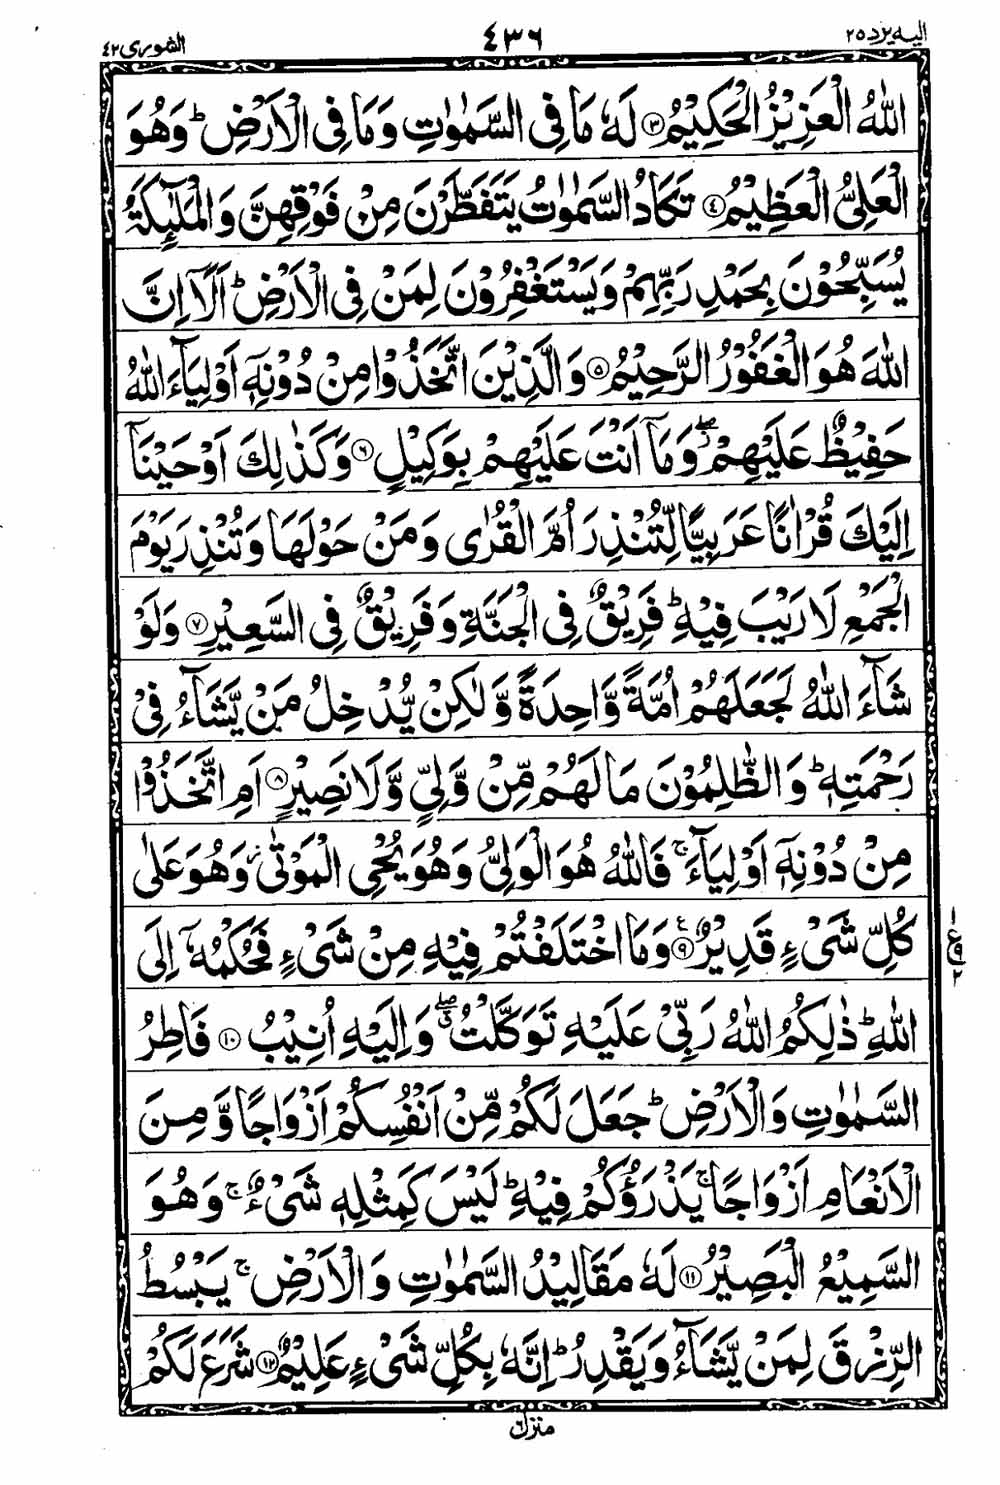 الیه یرد ۲۵
٤٣٦
الشوریٰ ٤٢
اللّٰهُ الْعَزِيْزُ الْحَكِيْمُ ﴿٣﴾ لَهٗ مَا فِى السَّمٰوٰتِ وَمَا فِى الْاَرْضِ ؕ وَهُوَ
الْعَلِىُّ الْعَظِيْمُ ﴿٤﴾ تَكَادُ السَّمٰوٰتُ يَتَفَطَّرْنَ مِنْ فَوْقِهِنَّ وَالْمَلٰٓئِكَةُ
يُسَبِّحُوْنَ بِحَمْدِ رَبِّهِمْ وَيَسْتَغْفِرُوْنَ لِمَنْ فِى الْاَرْضِ ؕ اَلَاۤ اِنَّ
اللّٰهَ هُوَ الْغَفُوْرُ الرَّحِيْمُ ﴿٥﴾ وَالَّذِيْنَ اتَّخَذُوْا مِنْ دُوْنِهٖۤ اَوْلِيَآءَ اللّٰهُ
حَفِيْظٌ عَلَيْهِمْ ۖ وَمَاۤ اَنْتَ عَلَيْهِمْ بِوَكِيْلٍ ﴿٦﴾ وَكَذٰلِكَ اَوْحَيْنَاۤ
اِلَيْكَ قُرْاٰنًا عَرَبِيًّا لِّتُنْذِرَ اُمَّ الْقُرٰى وَمَنْ حَوْلَهَا وَتُنْذِرَ يَوْمَ
الْجَمْعِ لَا رَيْبَ فِيْهِ ؕ فَرِيْقٌ فِى الْجَنَّةِ وَفَرِيْقٌ فِى السَّعِيْرِ ﴿٧﴾ وَلَوْ
شَآءَ اللّٰهُ لَجَعَلَهُمْ اُمَّةً وَّاحِدَةً وَّلٰكِنْ يُّدْخِلُ مَنْ يَّشَآءُ فِىْ
رَحْمَتِهٖ ؕ وَالظّٰلِمُوْنَ مَا لَهُمْ مِّنْ وَّلِىٍّ وَّلَا نَصِيْرٍ ﴿٨﴾ اَمِ اتَّخَذُوْا
مِنْ دُوْنِهٖۤ اَوْلِيَآءَ ۚ فَاللّٰهُ هُوَ الْوَلِىُّ وَهُوَ يُحْىِ الْمَوْتٰى وَهُوَ عَلٰى
كُلِّ شَىْءٍ قَدِيْرٌ ﴿٩﴾ وَمَا اخْتَلَفْتُمْ فِيْهِ مِنْ شَىْءٍ فَحُكْمُهٗۤ اِلَى
اللّٰهِ ؕ ذٰلِكُمُ اللّٰهُ رَبِّىْ عَلَيْهِ تَوَكَّلْتُ ۖ وَاِلَيْهِ اُنِيْبُ ﴿١٠﴾ فَاطِرُ
السَّمٰوٰتِ وَالْاَرْضِ ؕ جَعَلَ لَكُمْ مِّنْ اَنْفُسِكُمْ اَزْوَاجًا وَّمِنَ
الْاَنْعَامِ اَزْوَاجًا ۚ يَذْرَؤُكُمْ فِيْهِ ؕ لَيْسَ كَمِثْلِهٖ شَىْءٌ ۚ وَهُوَ
السَّمِيْعُ الْبَصِيْرُ ﴿١١﴾ لَهٗ مَقَالِيْدُ السَّمٰوٰتِ وَالْاَرْضِ ۚ يَبْسُطُ
الرِّزْقَ لِمَنْ يَّشَآءُ وَيَقْدِرُ ؕ اِنَّهٗ بِكُلِّ شَىْءٍ عَلِيْمٌ ﴿١٢﴾ شَرَعَ لَكُمْ
منزل ٦